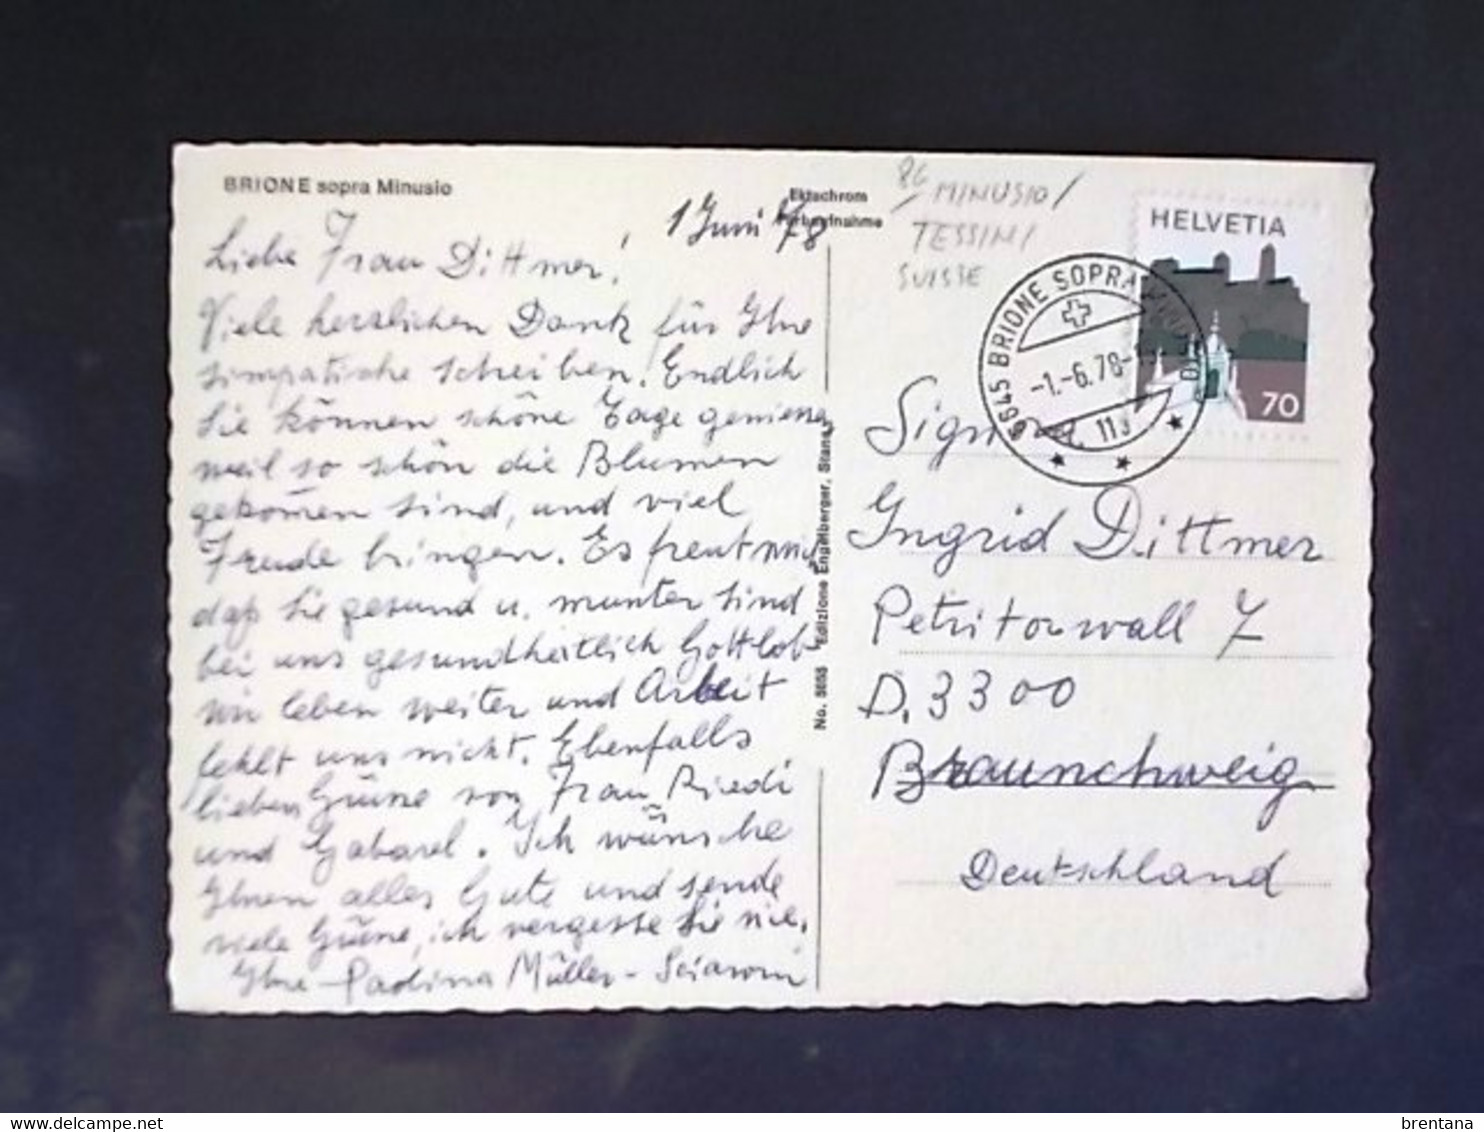 BRIONE sopra Minusio
Ektachrom
Farbaufnahme
1 Juni 78
Liebe Frau Dittmer!
Viele herzlichen Dank für Ihre
simpatische schreiben. Endlich
Sie können schöne Tage geniessen
weil so schön die Blumen
gekommen sind, und viel
Freude bringen. Es freut mich
daß Sie gesund u. munter sind
bei uns gesundheitlich Gottlob
wir leben weiter und Arbeit
fehlt uns nicht. Ebenfalls
lieben Grüsse von Frau Riedi
und Gabarel. Ich wünsche
Ihnen alles Gute und sende
viele Grüsse, ich vergesse Sie nie.
Ihre Paolina Müller-Sciaroni
No. 5655 Edizione Engelberger, Stans
86 MINUSIO/
TESSIN/
SUISSE
HELVETIA
70
6645 BRIONE SOPRA MINUSIO
-1.-6.78-
Signora
Ingrid Dittmer
Petritorwall 7
D. 3300
Braunchweig
Deutschland
brentana